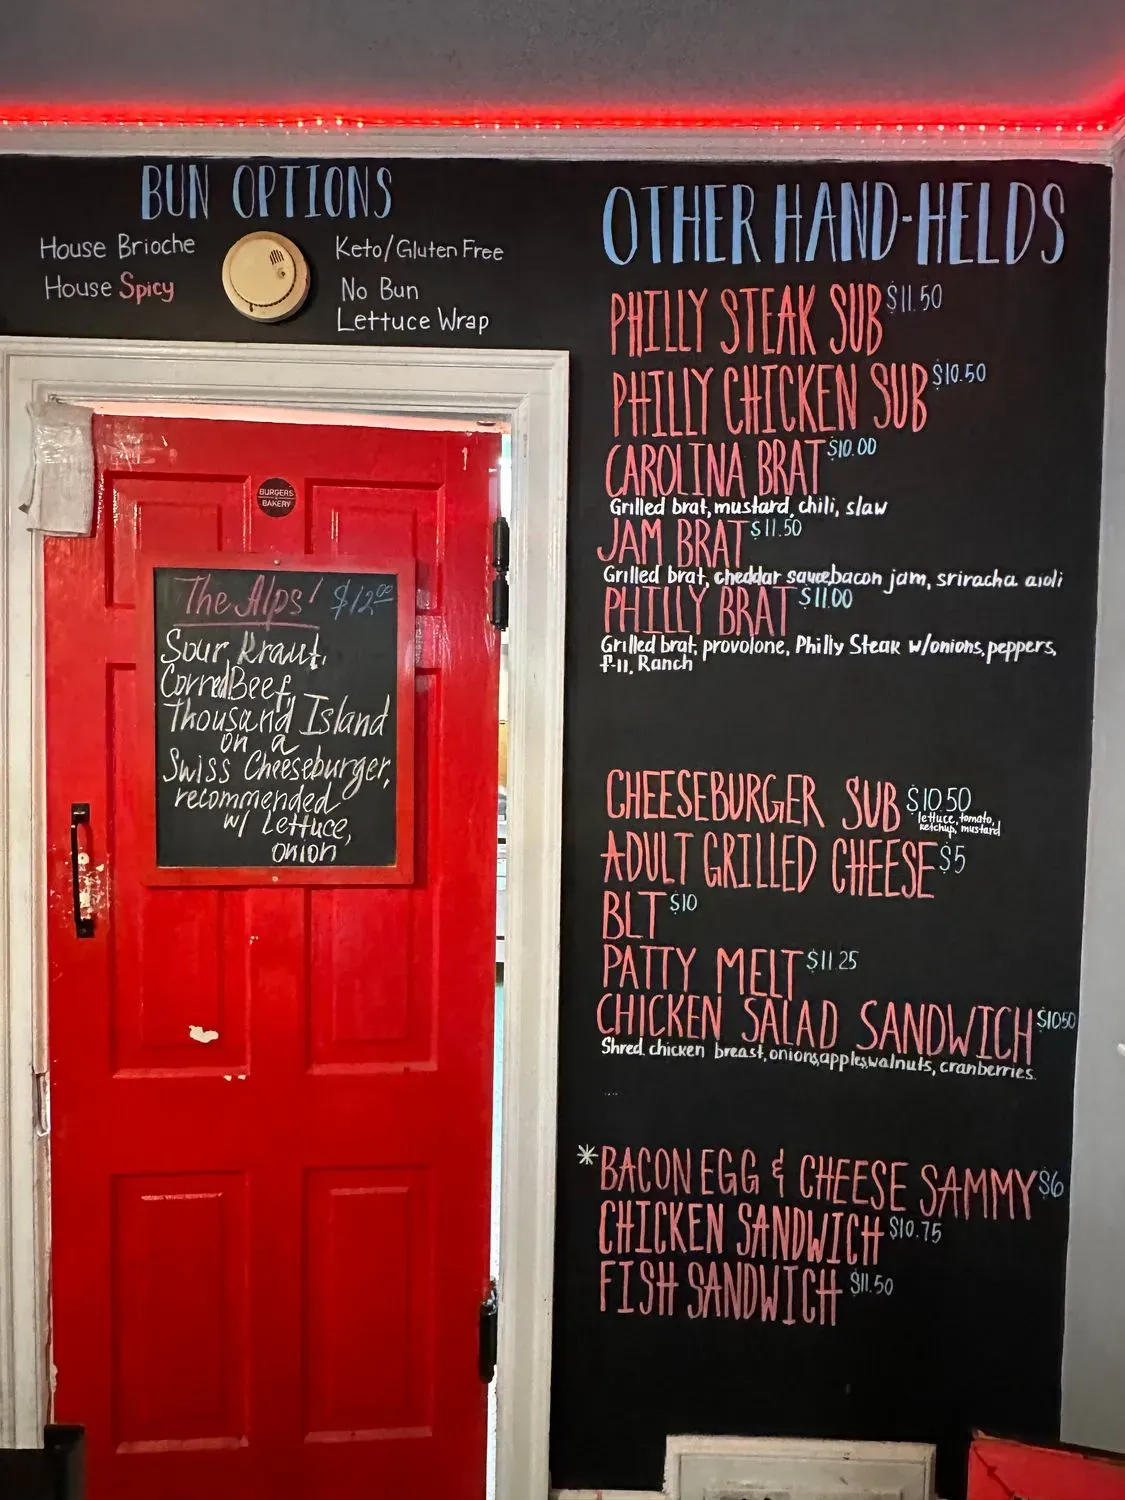 BUN OPTIONS
House Brioche
House Spicy
Keto/Gluten Free
No Bun
Lettuce Wrap
BURGERS
BAKERY
The Alps! $12.00
Sour Kraut,
Corned Beef,
Thousand Island
on a
Swiss Cheeseburger,
recommended
w/ Lettuce,
onion
OTHER HAND-HELDS
PHILLY STEAK SUB $11.50
PHILLY CHICKEN SUB $10.50
CAROLINA BRAT $10.00
Grilled brat, mustard, chili, slaw
JAM BRAT $11.50
Grilled brat, cheddar sauce, bacon jam, sriracha aioli
PHILLY BRAT $11.00
Grilled brat, provolone, Philly Steak w/onions, peppers,
f-11, Ranch
CHEESEBURGER SUB $10.50
lettuce, tomato,
ketchup, mustard
ADULT GRILLED CHEESE $5
BLT $10
PATTY MELT $11.25
CHICKEN SALAD SANDWICH $10.50
Shred. chicken breast, onions, apples, walnuts, cranberries.
*BACON EGG & CHEESE SAMMY $6
CHICKEN SANDWICH $10.75
FISH SANDWICH $11.50